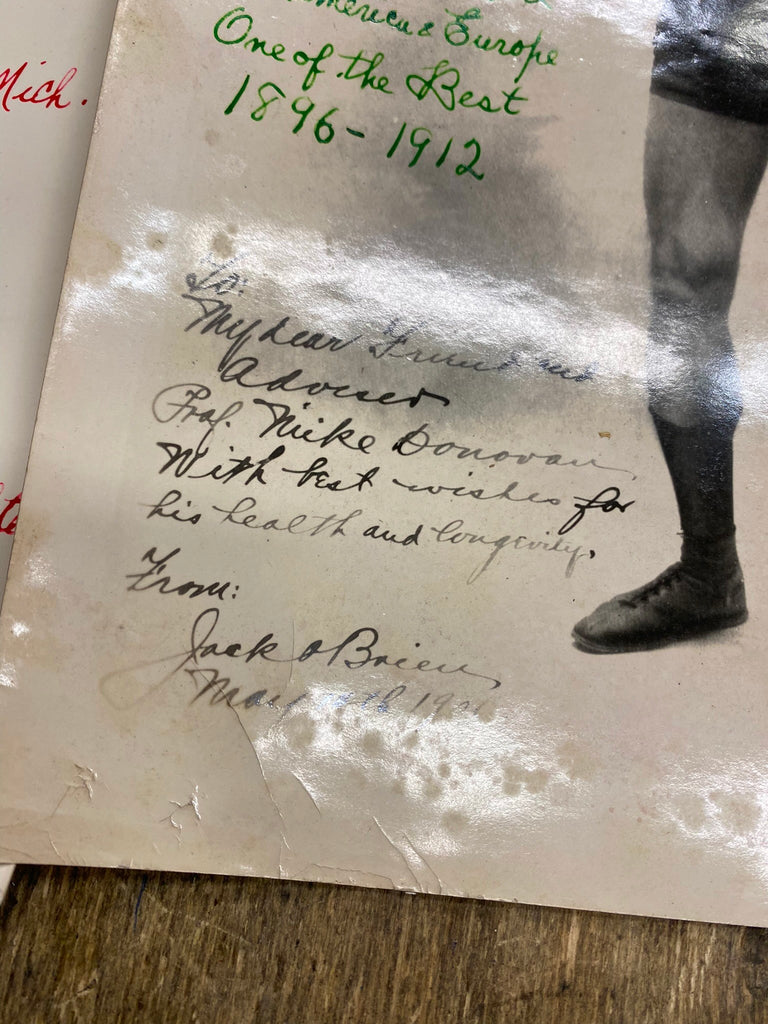 Mich.
America & Europe
One of the Best
1896 - 1912
To:
My dear Friend and
Adviser
Prof. Mike Donovan
With best wishes for
his health and longevity.
From:
Jack O'Brien
May